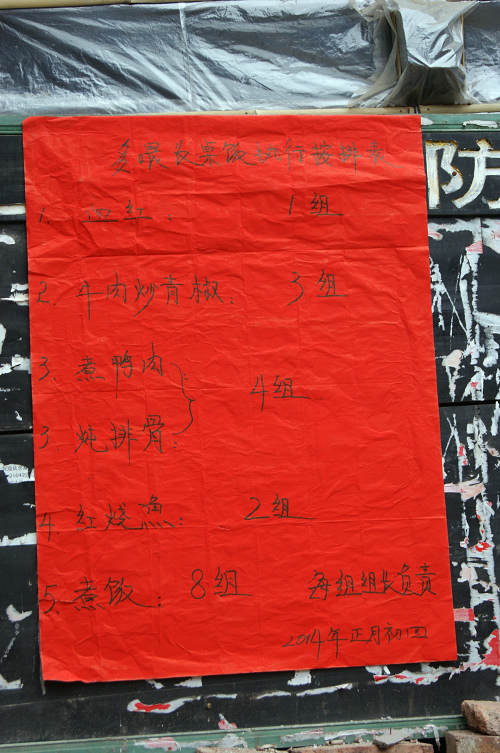 长桌饭进行按排表
防
1. 红: 1组
2. 牛肉炒青椒: 3组
3. 煮鸭肉
4组
3. 炖排骨:
4. 红烧渔: 2组
5. 煮饭: 8组 每组组长负责
2014年正月初四